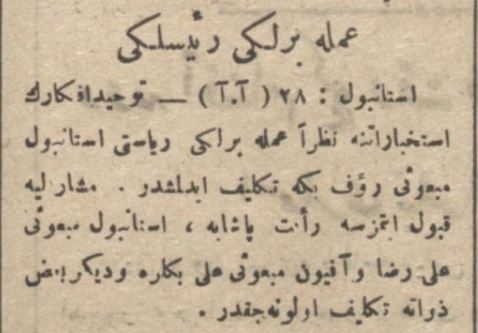 عمله برلكی رئيسلكی
استانبول : ٢٨ ( آ.آ ) — توحيدافكارك
استخباراتنه نظراً عمله برلكی رياستی استانبول
مبعوثی رؤف بكه تكليف ايدلمشدر . مشاراليه
قبول ايتمزسه رأفت پاشايه ، استانبول مبعوثی
علی رضا و آفيون مبعوثی علی بكلره وديكر بعض
ذواته تكليف اولونه‌جقدر .